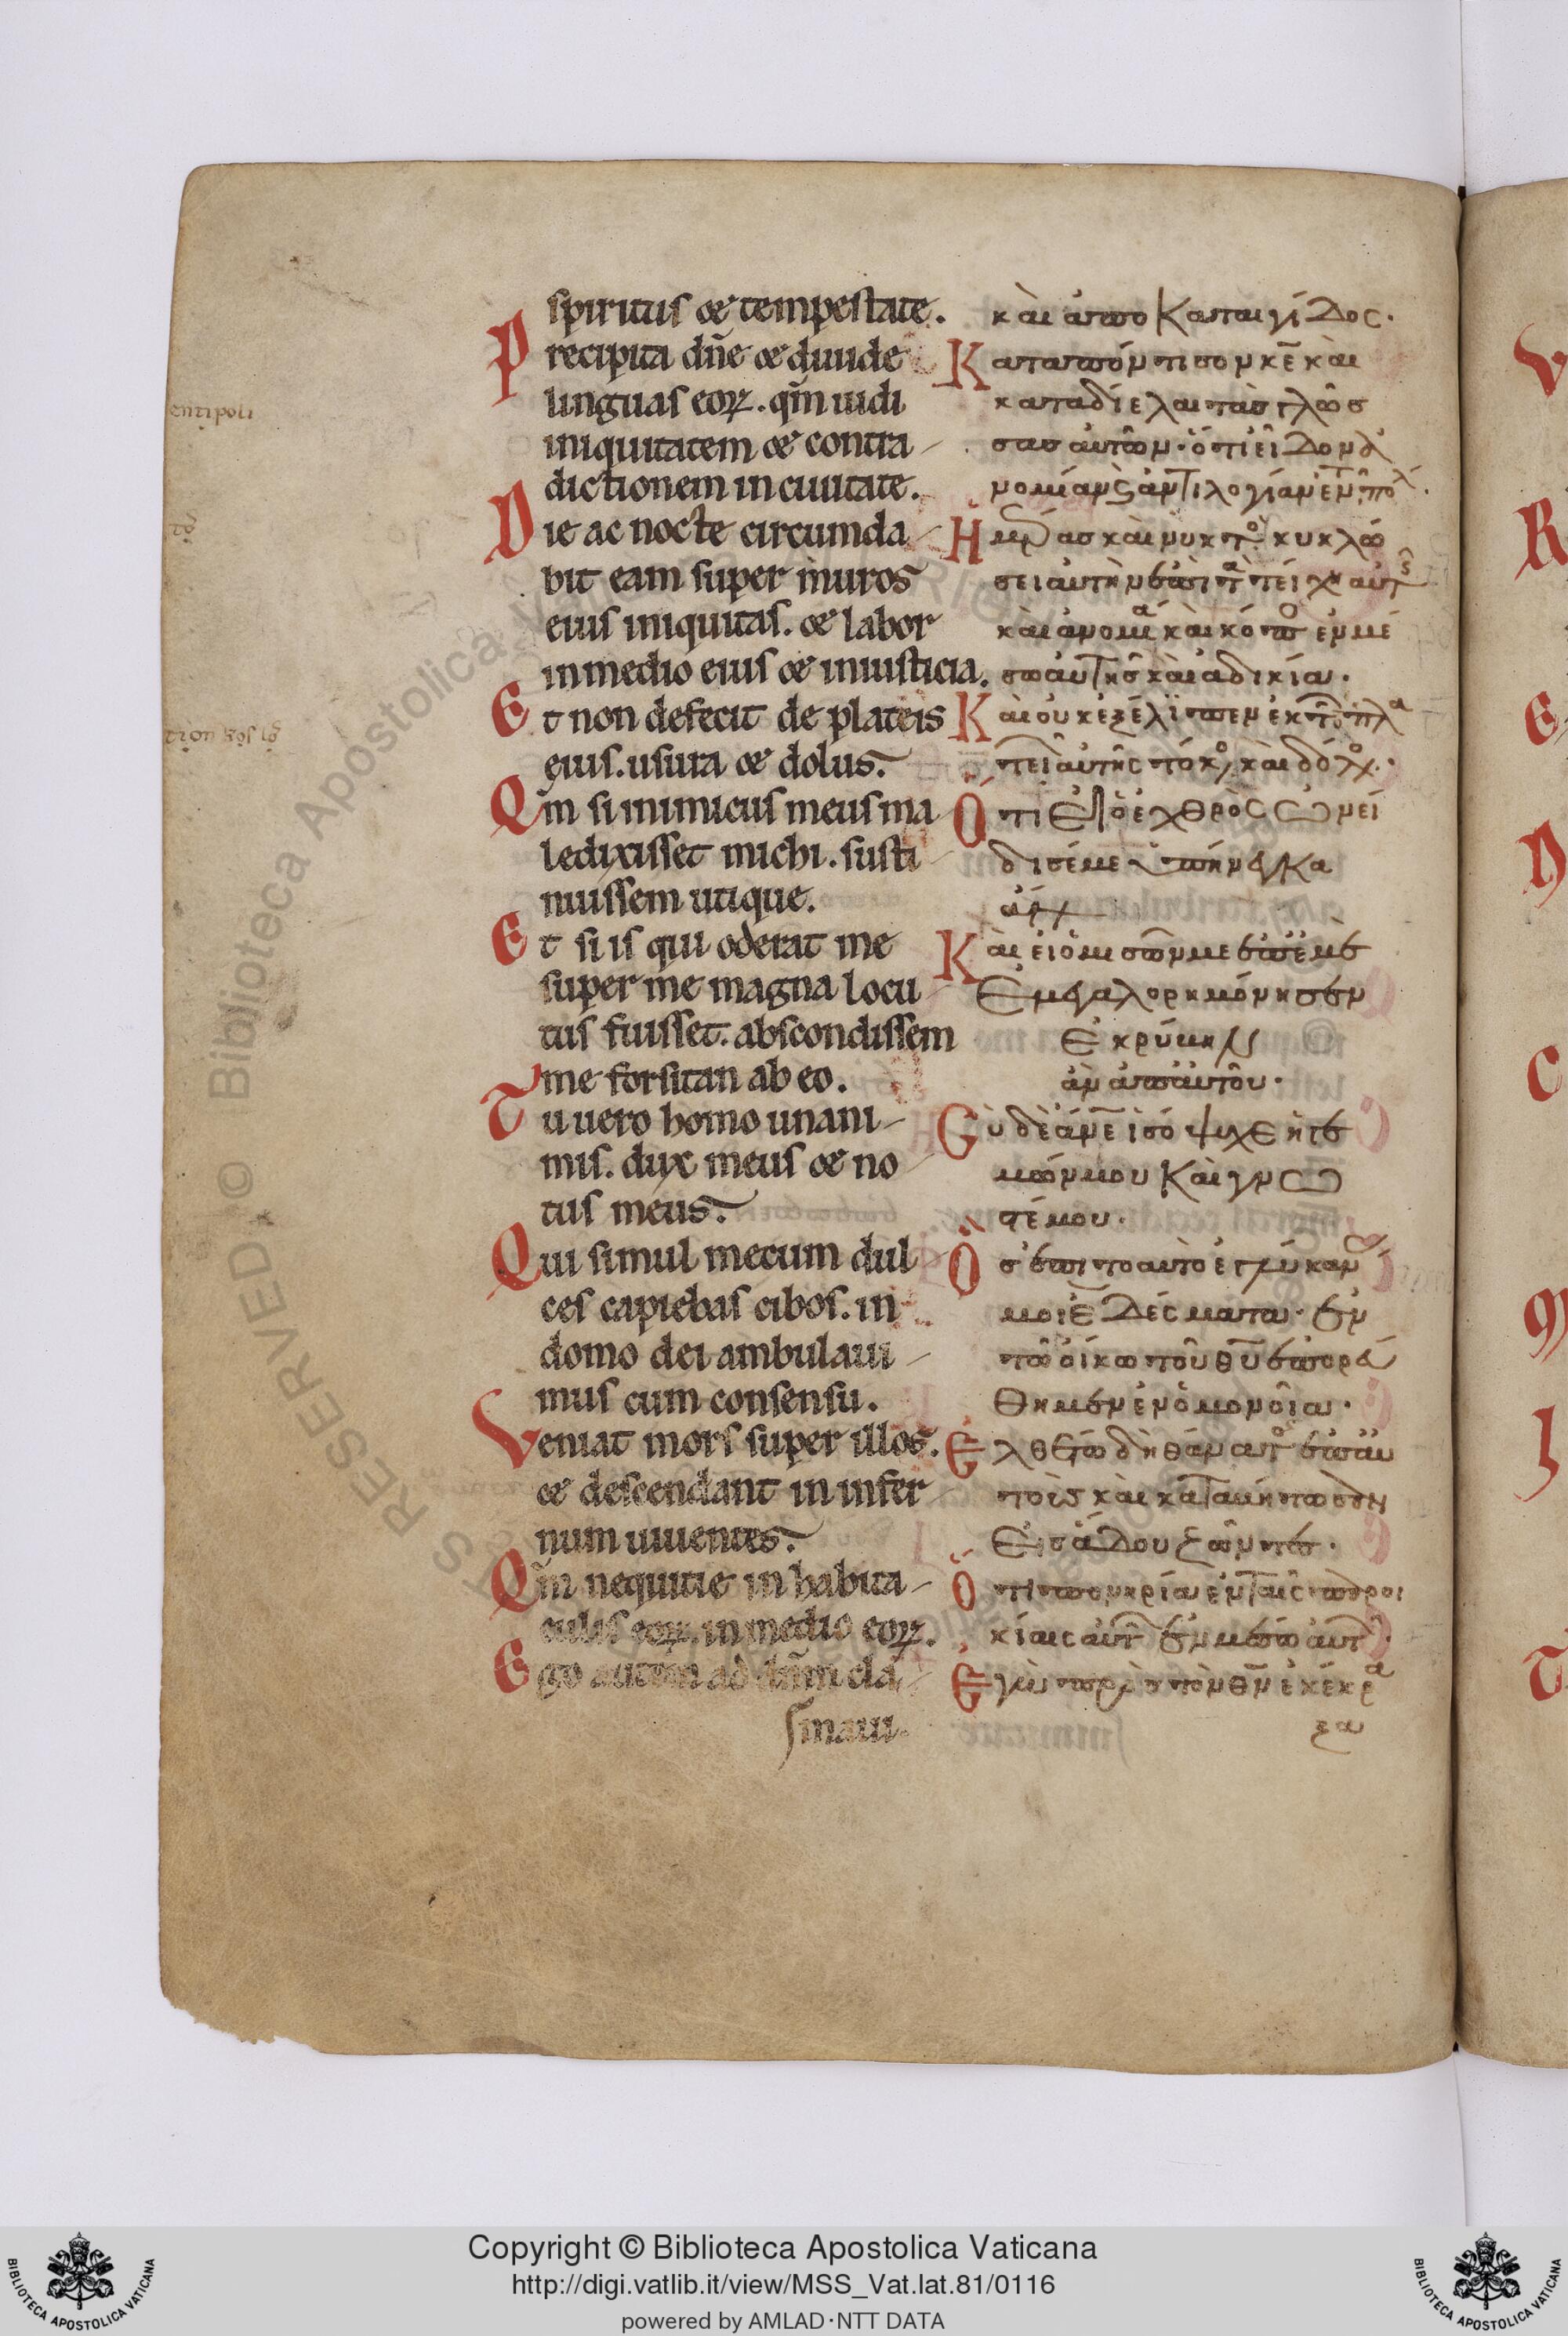 spiritus et tempestate.
Precipita dñe et diuide
linguas eoꝝ. qm̃ uidi
iniquitatem et contra
dictionem in ciuitate.
Die ac nocte circumda
bit eam super muros
eius iniquitas. et labor
in medio eius et iniusticia.
Et non defecit de plateis
eius. usura et dolus.
Qm̃ si inimicus meus ma
ledixisset michi. susti
nuissem utique.
Et si is qui oderat me
super me magna locu
tus fuisset. abscondissem
me forsitan ab eo.
Tu uero homo unani
mis. dux meus et no
tus meus.
Qui simul mecum dul
ces capiebas cibos. in
domo dei ambulaui
mus cum consensu.
Veniat mors super illos.
et descendant in infer
num uiuentes.
Qm̃ nequitie in habita
culis eoꝝ. in medio eoꝝ.
Ego autem ad dñm cla
maui.
κὰι ἀπο Καταιγίδος.
Καταπόντισον κε̅ κὰι
καταδίελαι τὰσ γλῶσ
σασ ἀυτῶν. ὅτι εἶδον ἀ
νομίαν ϗ ἀντιλογίαν ἐν τῆ πόλ
Ημέρασ κὰι νυκτὸ κυκλώ
σει ἀυτὴν ἐπὶ τὰ τείχη αυτῆς
κὰι ἀνομία κὰι κόπο ἐν μέ
σω ἀυτῆσ κὰι ἀδικία.
Κὰι ὀυκ ἐξέλιπεν ἐκ τῶ πλα
τειῶ ἀυτῆς τόκο κὰι δόλο.
Ὅτι Ει ὁ ἐχθρὸς ὠνεί
δισέ με ὑπήνεγκα
ἄν
Κὰι ἐι ὁ μισῶν με ἐπ ἐμὲ
Εμεγαλορημόνησεν
Εκρύβην
ἂν ἀπ ἀυτοῦ.
Σὺ δὲ ἄνε̅ ἰσόψυχε ἡγε
μών μου Καὶ γνω
στέ μου.
Ὃσ ἐπιτοαυτο ἐγλύκανάσ
μοι Εδέσματα. ἐν
τῶ ὄικω τοῦ θυ̅ ἐπορέυ
Θημεν ἐν ὁμονοῖα.
Ελθέτω δὴ θάνατο ἐπ ἀυ
τοὺσ κὰι καταβήτωσαν
Εισ ἅδου ζῶντεσ.
Ὅτι πονηρία ἐν ταῖς παροι
κίαις αυτῶ ἐν μέσω ἀυτῶ
Εγὼ πρὸσ τὸν θν̅ ἐκέκρα
ξα
Copyright © Biblioteca Apostolica Vaticana
http://digi.vatlib.it/view/MSS_Vat.lat.81/0116
powered by AMLAD·NTT DATA